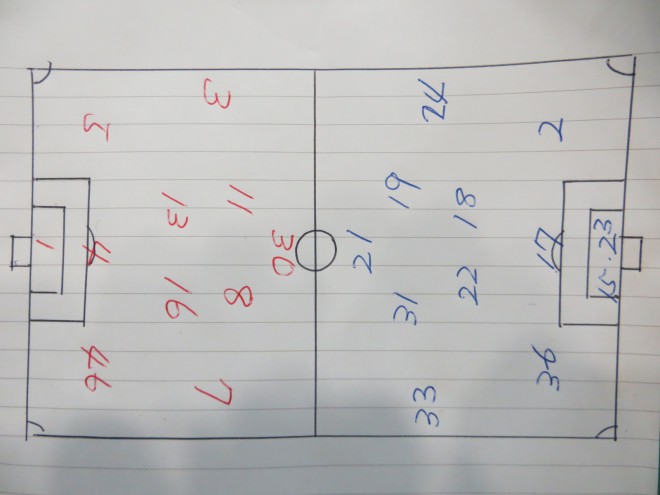 3
5
11
13
30
1
4
8
16
46
7
24
2
19
18
21
17
15・23
22
31
36
33